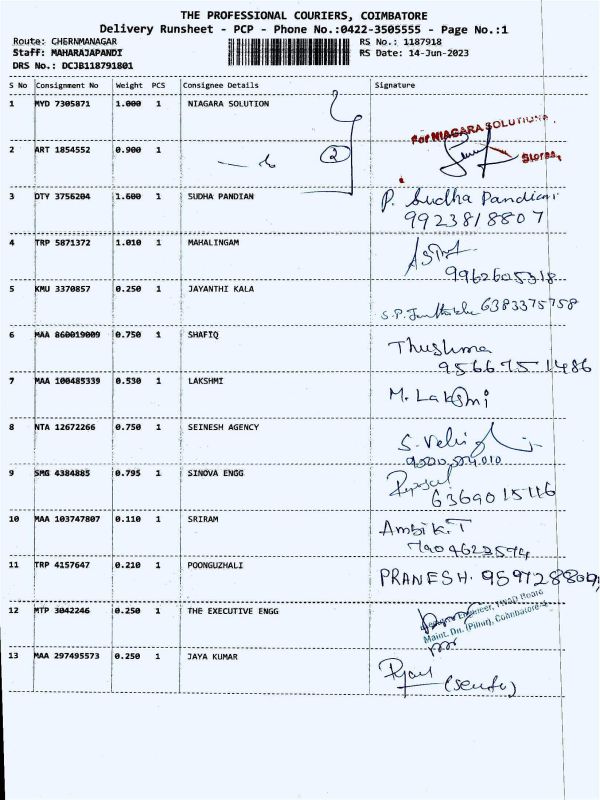 THE PROFESSIONAL COURIERS, COIMBATORE
Delivery Runsheet - PCP - Phone No.:0422-3505555 - Page No.:1
Route: CHERNMANAGAR RS No.: 1187918
Staff: MAHARAJAPANDI RS Date: 14-Jun-2023
DRS No.: DCJB118791801
S No Consignment No Weight PCS Consignee Details Signature
1 MYD 7305871 1.000 1 NIAGARA SOLUTION
For NIAGARA SOLUTIONS
2 ART 1854552 0.900 1 2
Stores,
3 DTY 3756204 1.600 1 SUDHA PANDIAN P. Sudha Pandian
9923818807
4 TRP 5871372 1.010 1 MAHALINGAM
9962605318
5 KMU 3370857 0.250 1 JAYANTHI KALA
S.P. 6383375758
6 MAA 860019009 0.750 1 SHAFIQ Thushma
9566751486
7 MAA 100485339 0.530 1 LAKSHMI M. Lakshmi
8 NTA 12672266 0.750 1 SEINESH AGENCY S.
9 SMG 4384885 0.795 1 SINOVA ENGG
10 MAA 103747807 0.110 1 SRIRAM Ambik.T
11 TRP 4157647 0.210 1 POONGUZHALI PRANESH.
12 MTP 3042246 0.250 1 THE EXECUTIVE ENGG Engineer, TWAD Board
Maint. Dn. (Pilloor), Coimbatore-
13 MAA 297495573 0.250 1 JAYA KUMAR